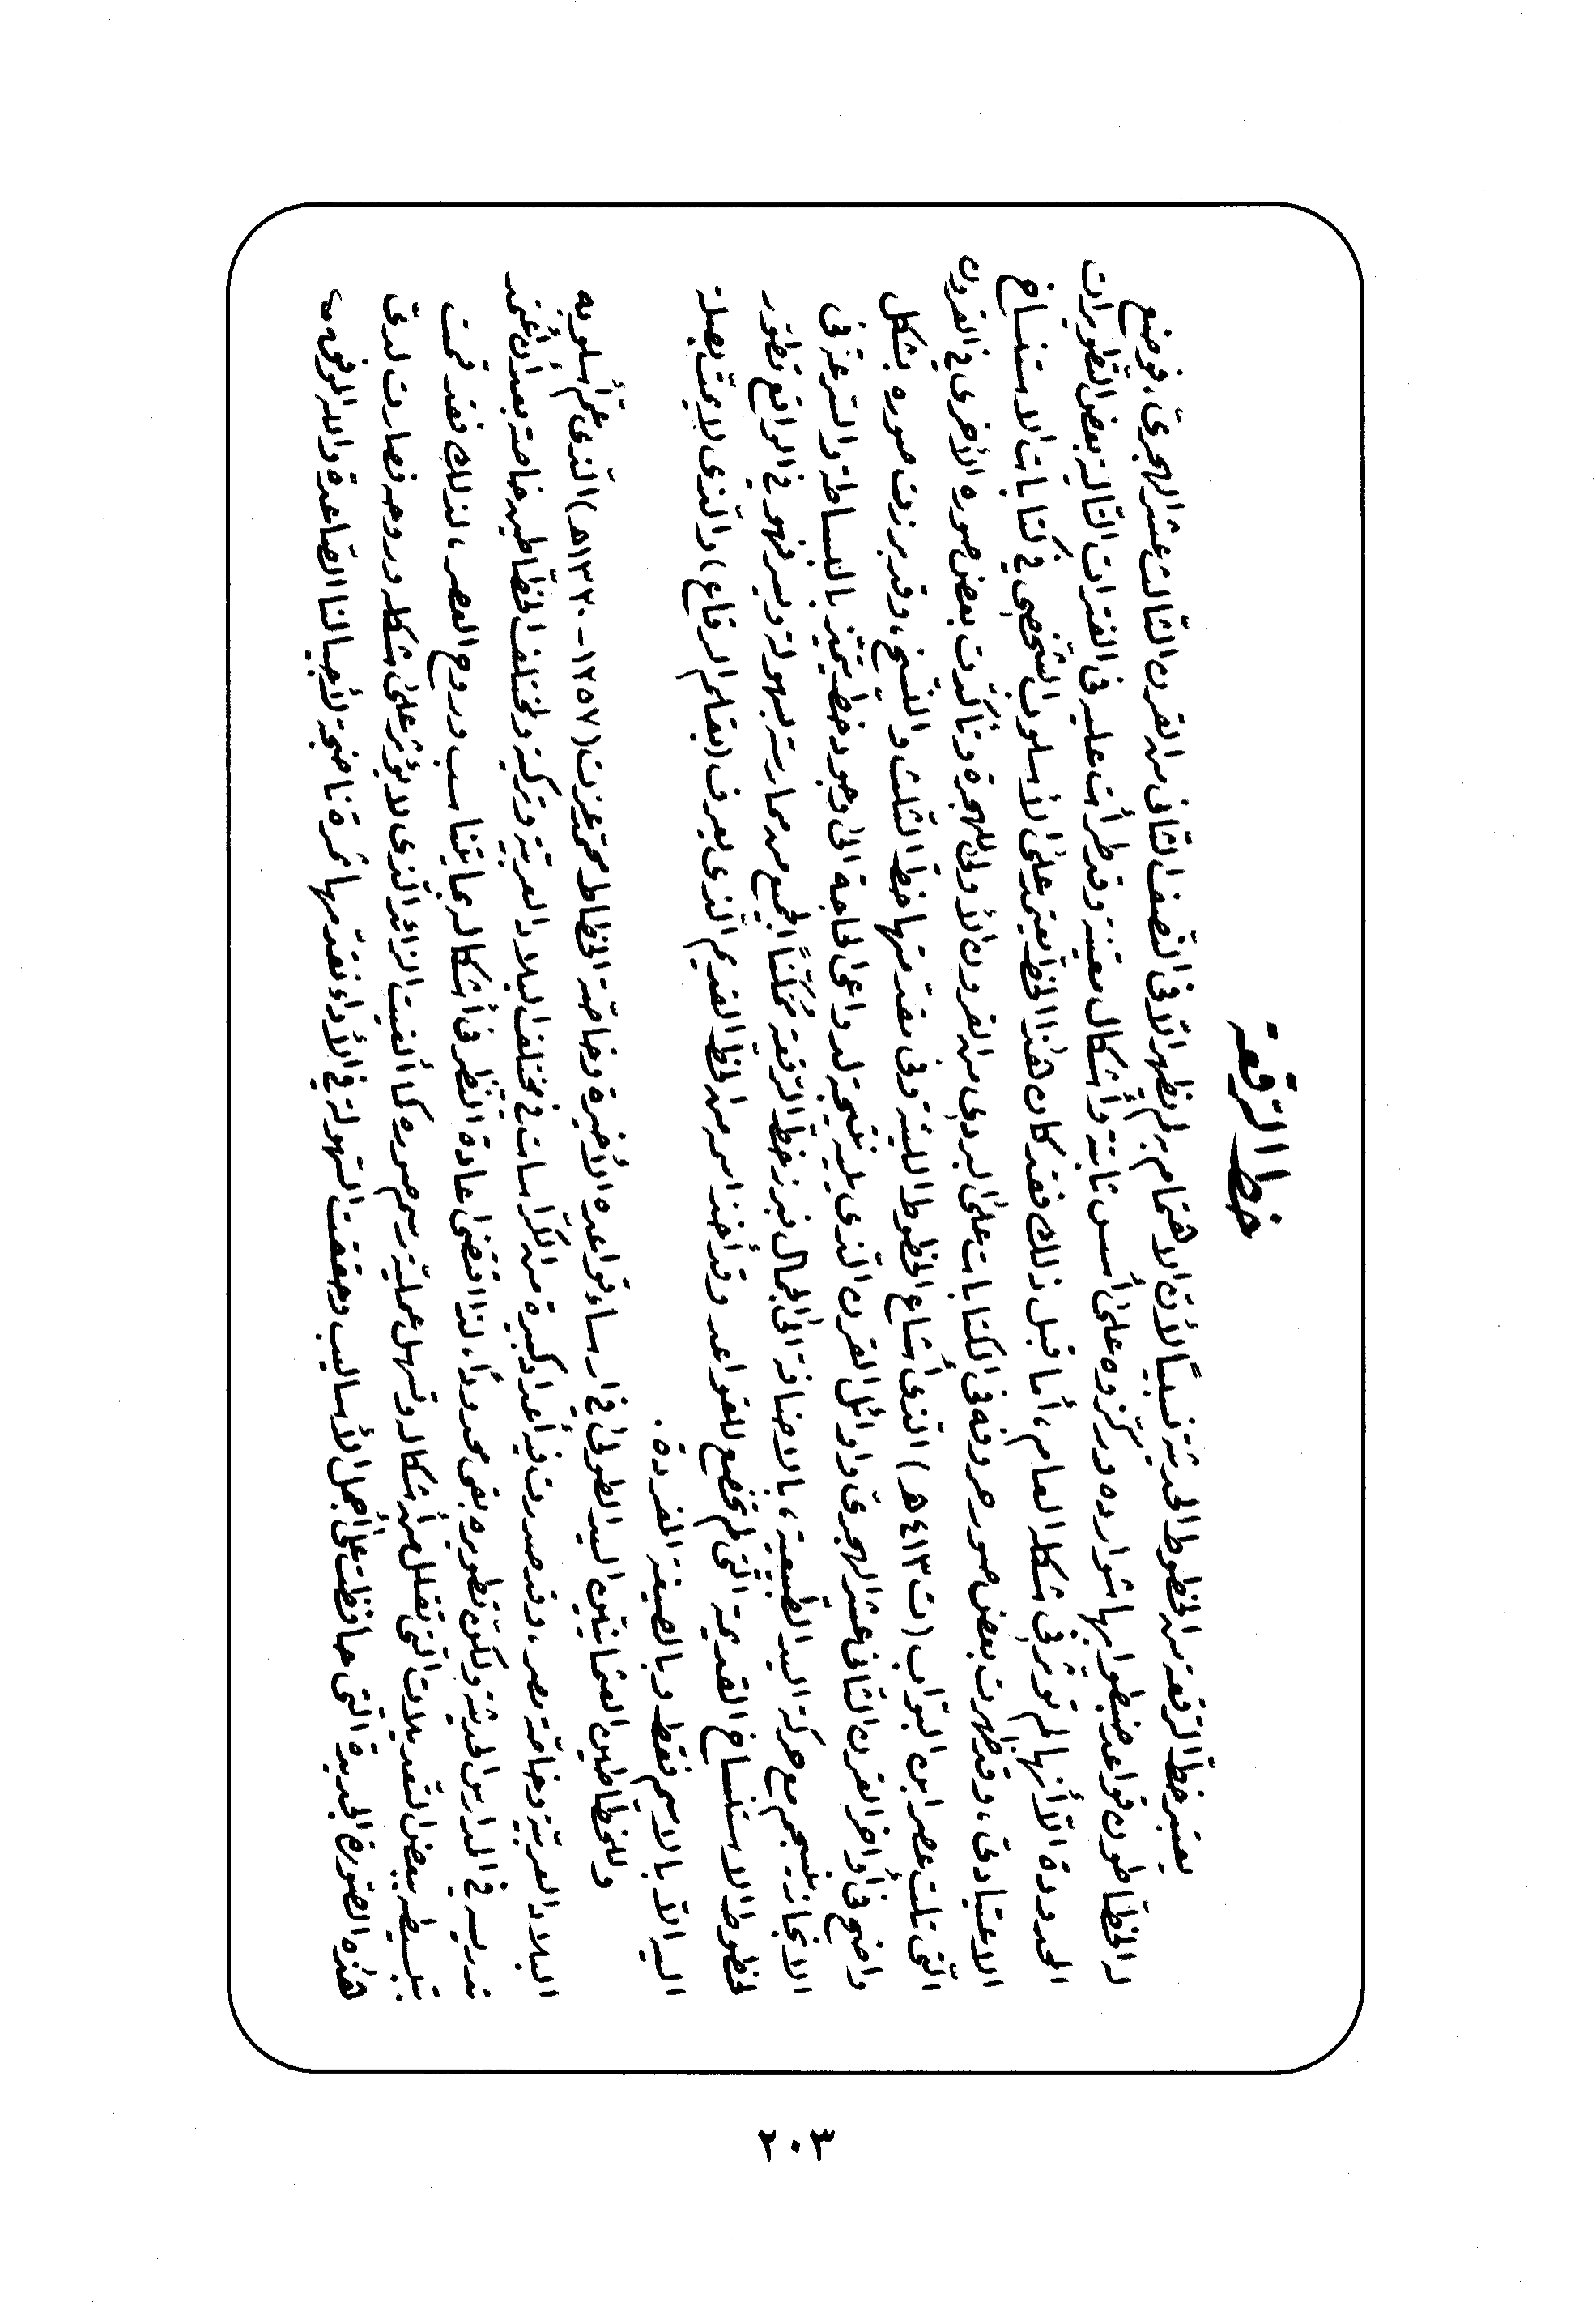 خط الرّقعة
يعتبر خطّ الرّقعة من الخطوط الحديثة نسبيًا لأنّ الاهتمام به لم يظهر الّا في النّصف الثّاني من القرن الثّالث عشر الهجريّ، فوضع
له الخطّاطون قواعد ضبطوا بها شوارده وركّزوه على أسس ثابتة وأشكال معيّنة وقد طرأت عليه في الفترات التّالية بعض التّطويرات
المحدودة الّا أنّها لم تؤثّر في شكله العام، أما قبل ذلك فقد كان هذا الخطّ يعتمد على الأسلوب الشّخصي في كتابات الاستنساخ
الاعتيادىّ، وقد ظهرت بعض صور حروفه في الكتابات على البردي من القرون الأولى للهجرة وتأكّدت بعض صوره الأخرى في القرون
الّتى تلت عصر ابن البوّاب (ت ٤١٣ هـ) الّذى أشاع الخطوط الليّنة وفي مقدمتها خطّ الثّلث والنّسخ، وقد برزت صوره بشكل
واضح في أواخر القرن الثّانى عشر الهجرىّ واوائل القرن الّذى يليه نتيجة لدواعى الحاجة الى وجود خط يتميّز بالبساطة والسّرعة في
الانجاز ينسجم مع حركة اليد الطّبيعية، بالاضافة الى الجمال فبرز خطّ الرّقعة ممكّنًا الجميع من ممارسته بسهولة ويسر فهو في الواقع تطوّر
لخطوط الاستنساخ القديمة الّتى لم تخضع للقواعد وقد أخذ اسمه من الخطّ القديم الّذى يعرف (بقلم الرقاع) والّذى لا يمتّ بصلة
اليه الّا بالاسم فقط وبالصيغة المفردة.
وللخطّاطين العثمانيّين اليد الطولى في ارساء قواعده الأخيرة وخاصّة الخطاط محمّد عزت (١٢٥٧-١٣٢٠هـ) الّذى عمّ أسلوبه
البلاد العربيّة وخاصّة مصر، وقد صدرت فيه أعداد كبيرة من الكرّاسات في مختلف البلاد العربيّة وتركية ولمختلف الخطّاطين خاصة بعد أن أعتمد
تدريسه في المدارس الحديثة ولكنّ تطويره بقى محدودًا، لذا اقتضى اعادة النّظر في أشكاله بما يتناسب وروح العصر، لذلك فقد قمت
بتبسيطه ببعض التّعديلات الّتى تقلل من أشكاله وتسهل عمليّة رسم صوره كما ألغيت الزائد الّذى لا يؤثر على شكله وروحه فصارت لدىّ
هذه الصّورة الجديدة الّتى حافظت على أجمل الأساليب وحققت السّهولة في الأداء نقدّمها ثمرة ناضجة لأجيالنا الصّاعدة والله الموفق
٢٠٣